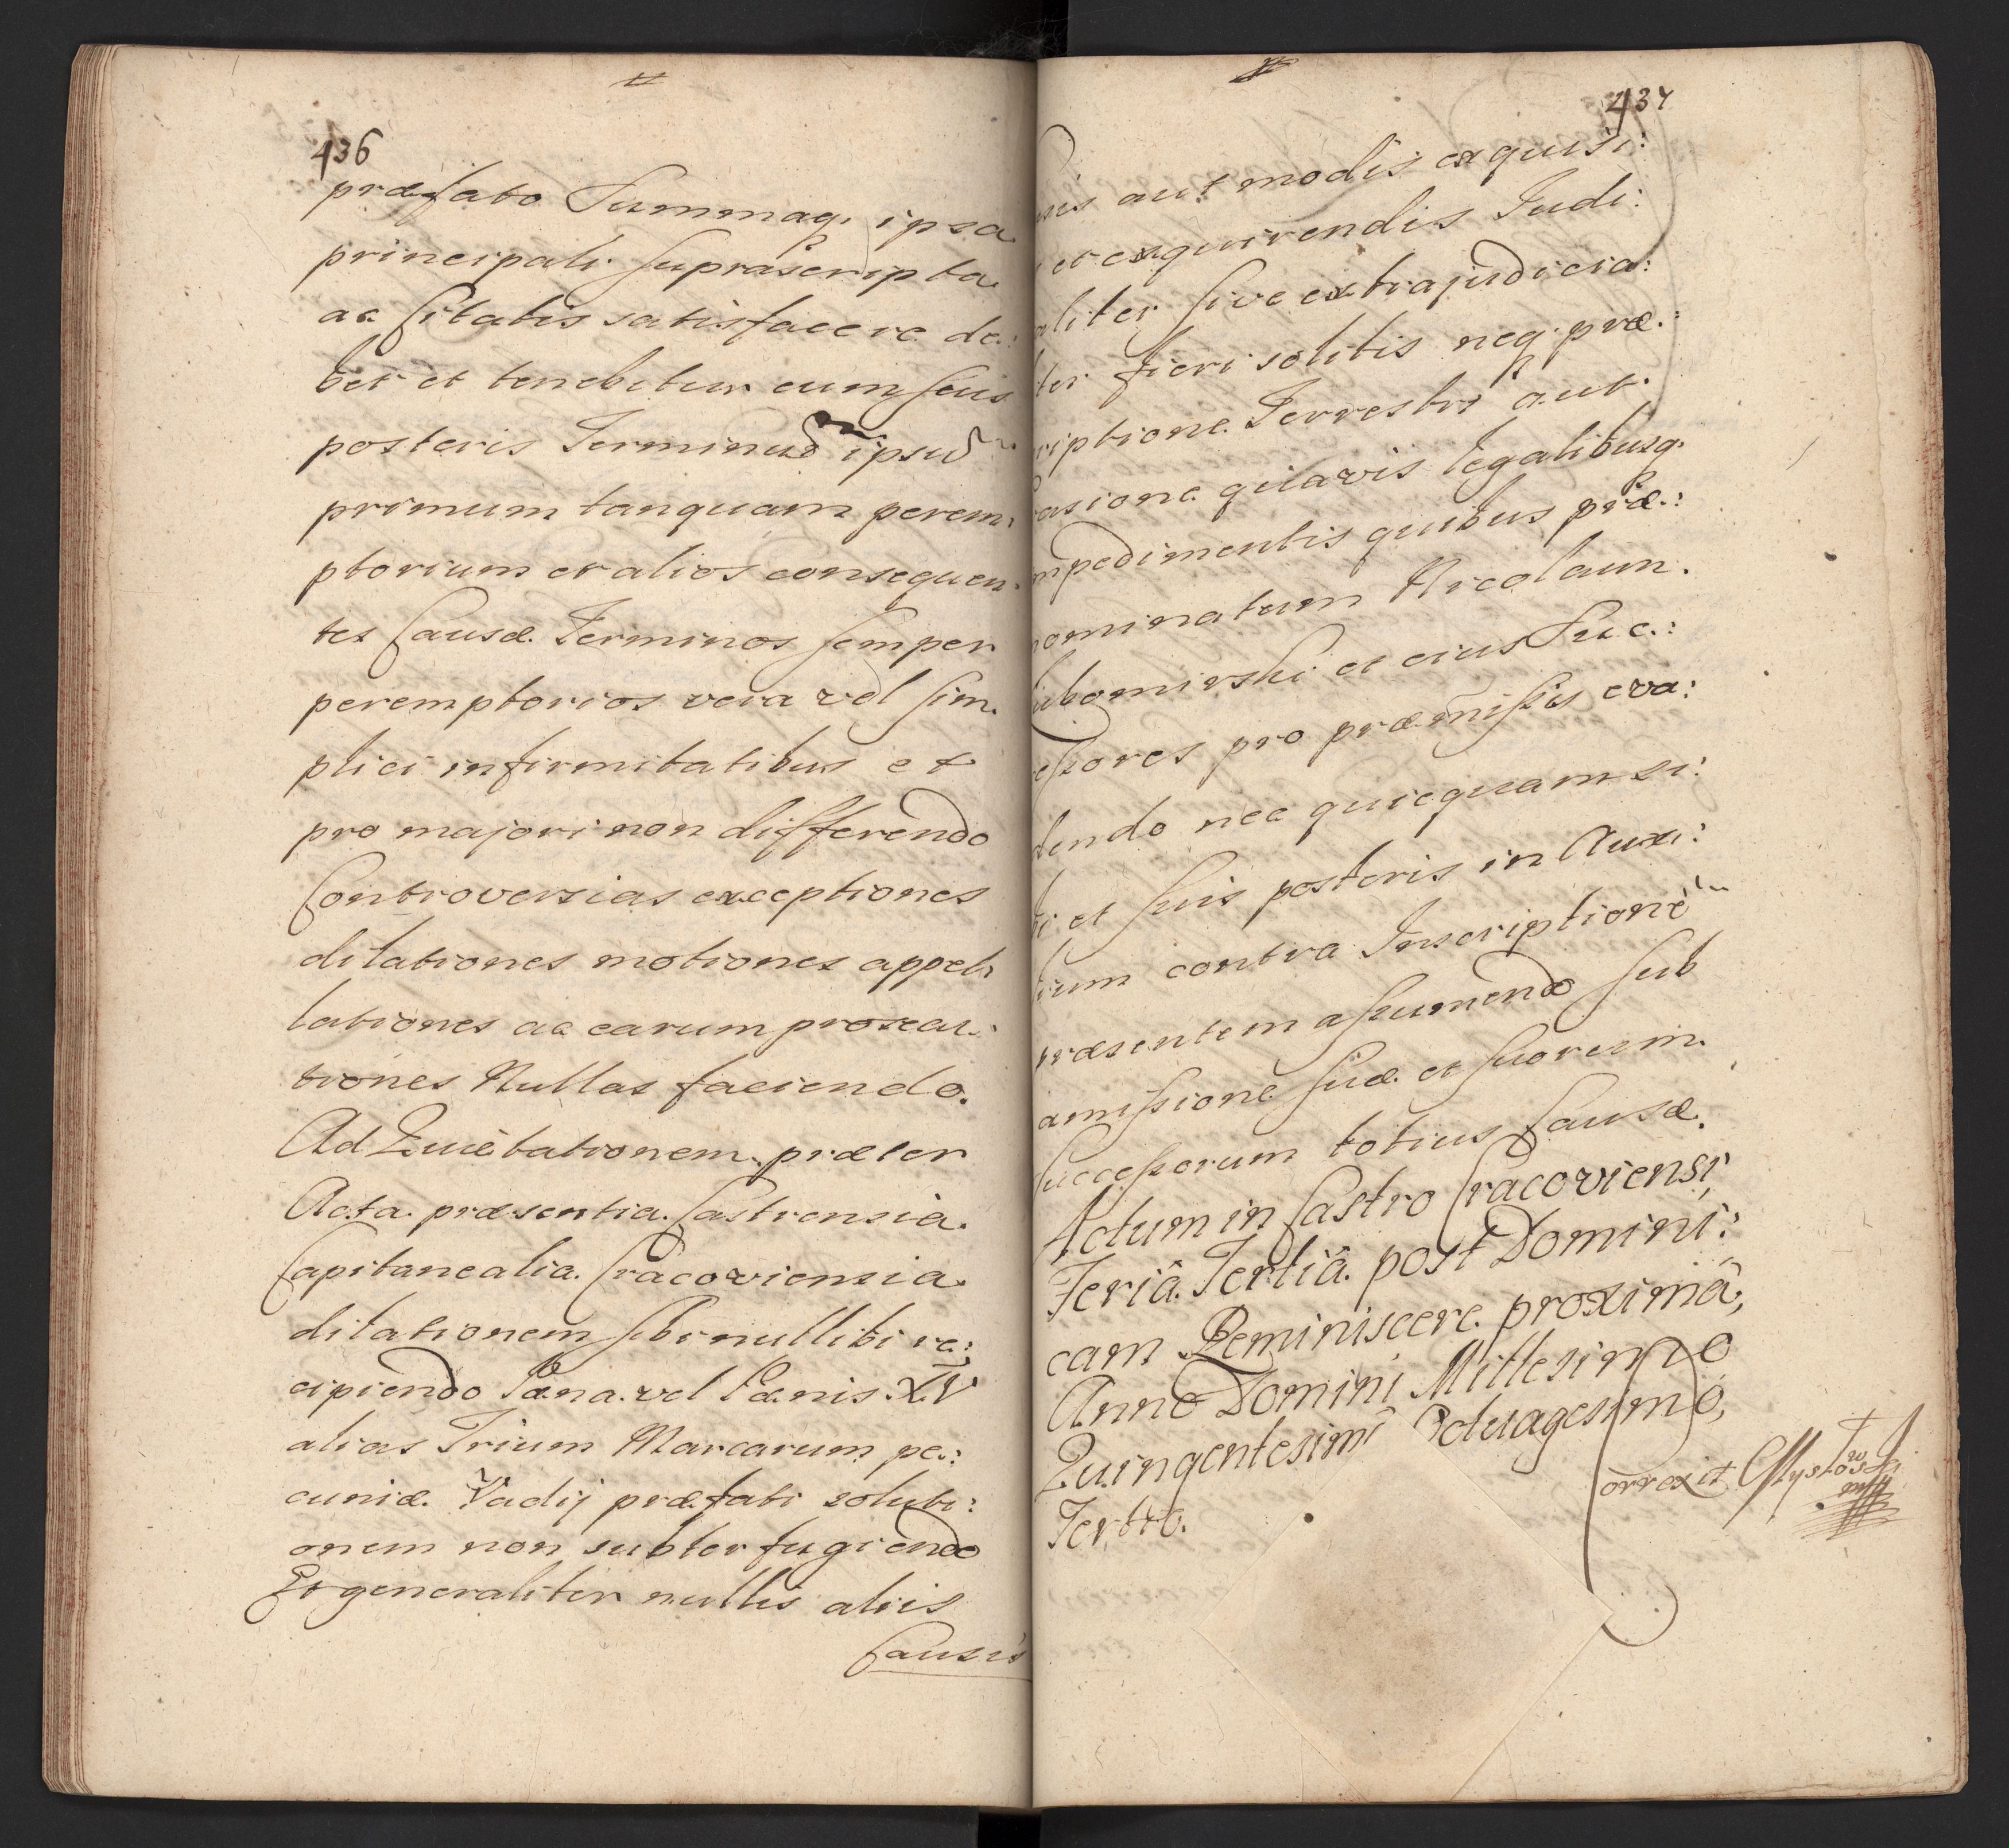 436
præfato Summaq, ipsa
principali supra scripta
ac citatis satisfacere de:
bet et tenebitur cum suis
posteris Terminum ipsum
primum tanquam perem:
ptorium et alios consequen:
tes Causæ Terminos semper
peremptorios vera vel sim:
plici infirmitatibus et
pro majori non differendo
Controversias exceptiones
dilationes motiones appel:
lationes ac earum prosecu:
tiones Nullas faciendo.
Ad Quietationem præter
Acta præsentia Castrensia
Capitanealia Cracoviensia
dilationem sibi nullibi re:
cipiendo Pæna vel Pænis XV
alias Trium Marcarum pe:
cuniæ Vadij præfati soluti:
onem non subterfugiendo
Et generaliter nullis aliis
Causis
437
sis aut modis exquisi:
et exquirendis Judi:
aliter sive extrajudicia:
ter fieri solitis neq. præ:
riptione Terrestri aut
asione quavis legalibusq.
mpedimentis quibus præ:
nominatum Nicolaum
Lubomirski et eius Suc:
essores pro præmissis eva:
dendo nec quicquam si:
bi et suis posteris in Auxi:
lium contra Inscriptionem
præsentem assumendo sub
amissione suæ et suorum
successorum totius Causæ.
Actum in Castro Cracoviensi
Feriâ Tertiâ post Domini:
cam Reminiscere proximâ,
Anno Domini Millesimo
Quingentesimo Octuagesimo,
Tertio.
Correxit